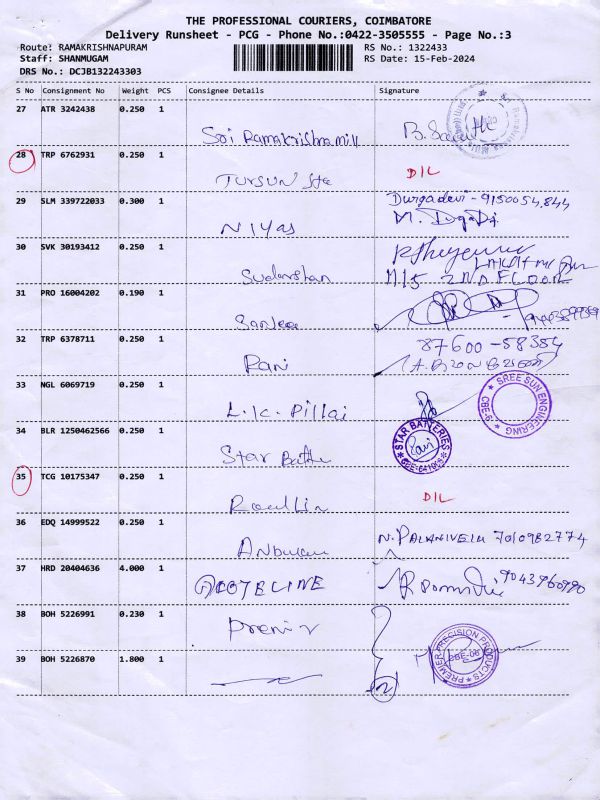 THE PROFESSIONAL COURIERS, COIMBATORE
Delivery Runsheet - PCG - Phone No.:0422-3505555 - Page No.:3
Route: RAMAKRISHNAPURAM RS No.: 1322433
Staff: SHANMUGAM RS Date: 15-Feb-2024
DRS No.: DCJB132243303
S No Consignment No Weight PCS Consignee Details Signature
27 ATR 3242438 0.250 1
Sri Ramakrishna mill
28 TRP 6762931 0.250 1
DIL
29 SLM 339722033 0.300 1
Durgadevi - 9150054844
Niyas
30 SVK 30193412 0.250 1
Sudarshan
M15 2ND FLOOR
31 PRO 16004202 0.190 1
32 TRP 6378711 0.250 1
87600-58384
Rani
33 NGL 6069719 0.250 1
L.K. Pillai
SREE SUN ENGINEERING
CBE-9
34 BLR 1250462566 0.250 1
Star
STAR BATTERIES
35 TCG 10175347 0.250 1
DIL
36 EDQ 14999522 0.250 1
N. PALANIVELU 7010982774
37 HRD 20404636 4.000 1
38 BOH 5226991 0.230 1
39 BOH 5226870 1.800 1
PREMIER PRECISION PRODUCTS
CBE-06
2